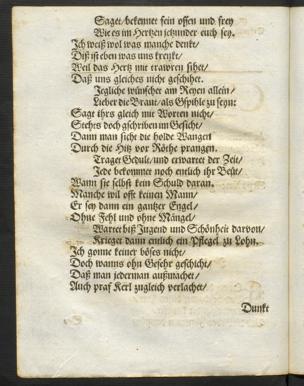 Saget/bekennet fein offen und frey
Wie es im Hertzen jetzunder euch sey.
Ich weiß wol was manche denkt/
Diß ist eben was uns krenkt/
Weil das Hertz mit trawren sihet/
Daß uns gleiches nicht geschihet.
Jegliche wünschet am Reyen allein/
Lieber die Braut/als Gspihle zu seyn:
Sagt ihrs gleich mit Worten nicht/
Stehts doch gschriben im Gesicht/
Dann man sicht die holde Wangen
Durch die Hitz vor Röthe prangen.
Traget Gedult/und erwartet der Zeit/
Jede bekommet noch entlich ihr Beüt/
Wann sie selbst kein Schuld daran.
Manche wil offt keinen Mann/
Er sey dann ein gantzer Engel/
Ohne Fehl und ohne Mängel/
Wartet biß Jugend und Schönheit darvon/
Krieget dann entlich ein Pflegel zu Lohn.
Ich gonne keiner böses nicht/
Doch wanns ohn Gefehr geschicht/
Daß man jederman außmachet/
Auch praf Kerl zugleich verlachet/
Dunkt